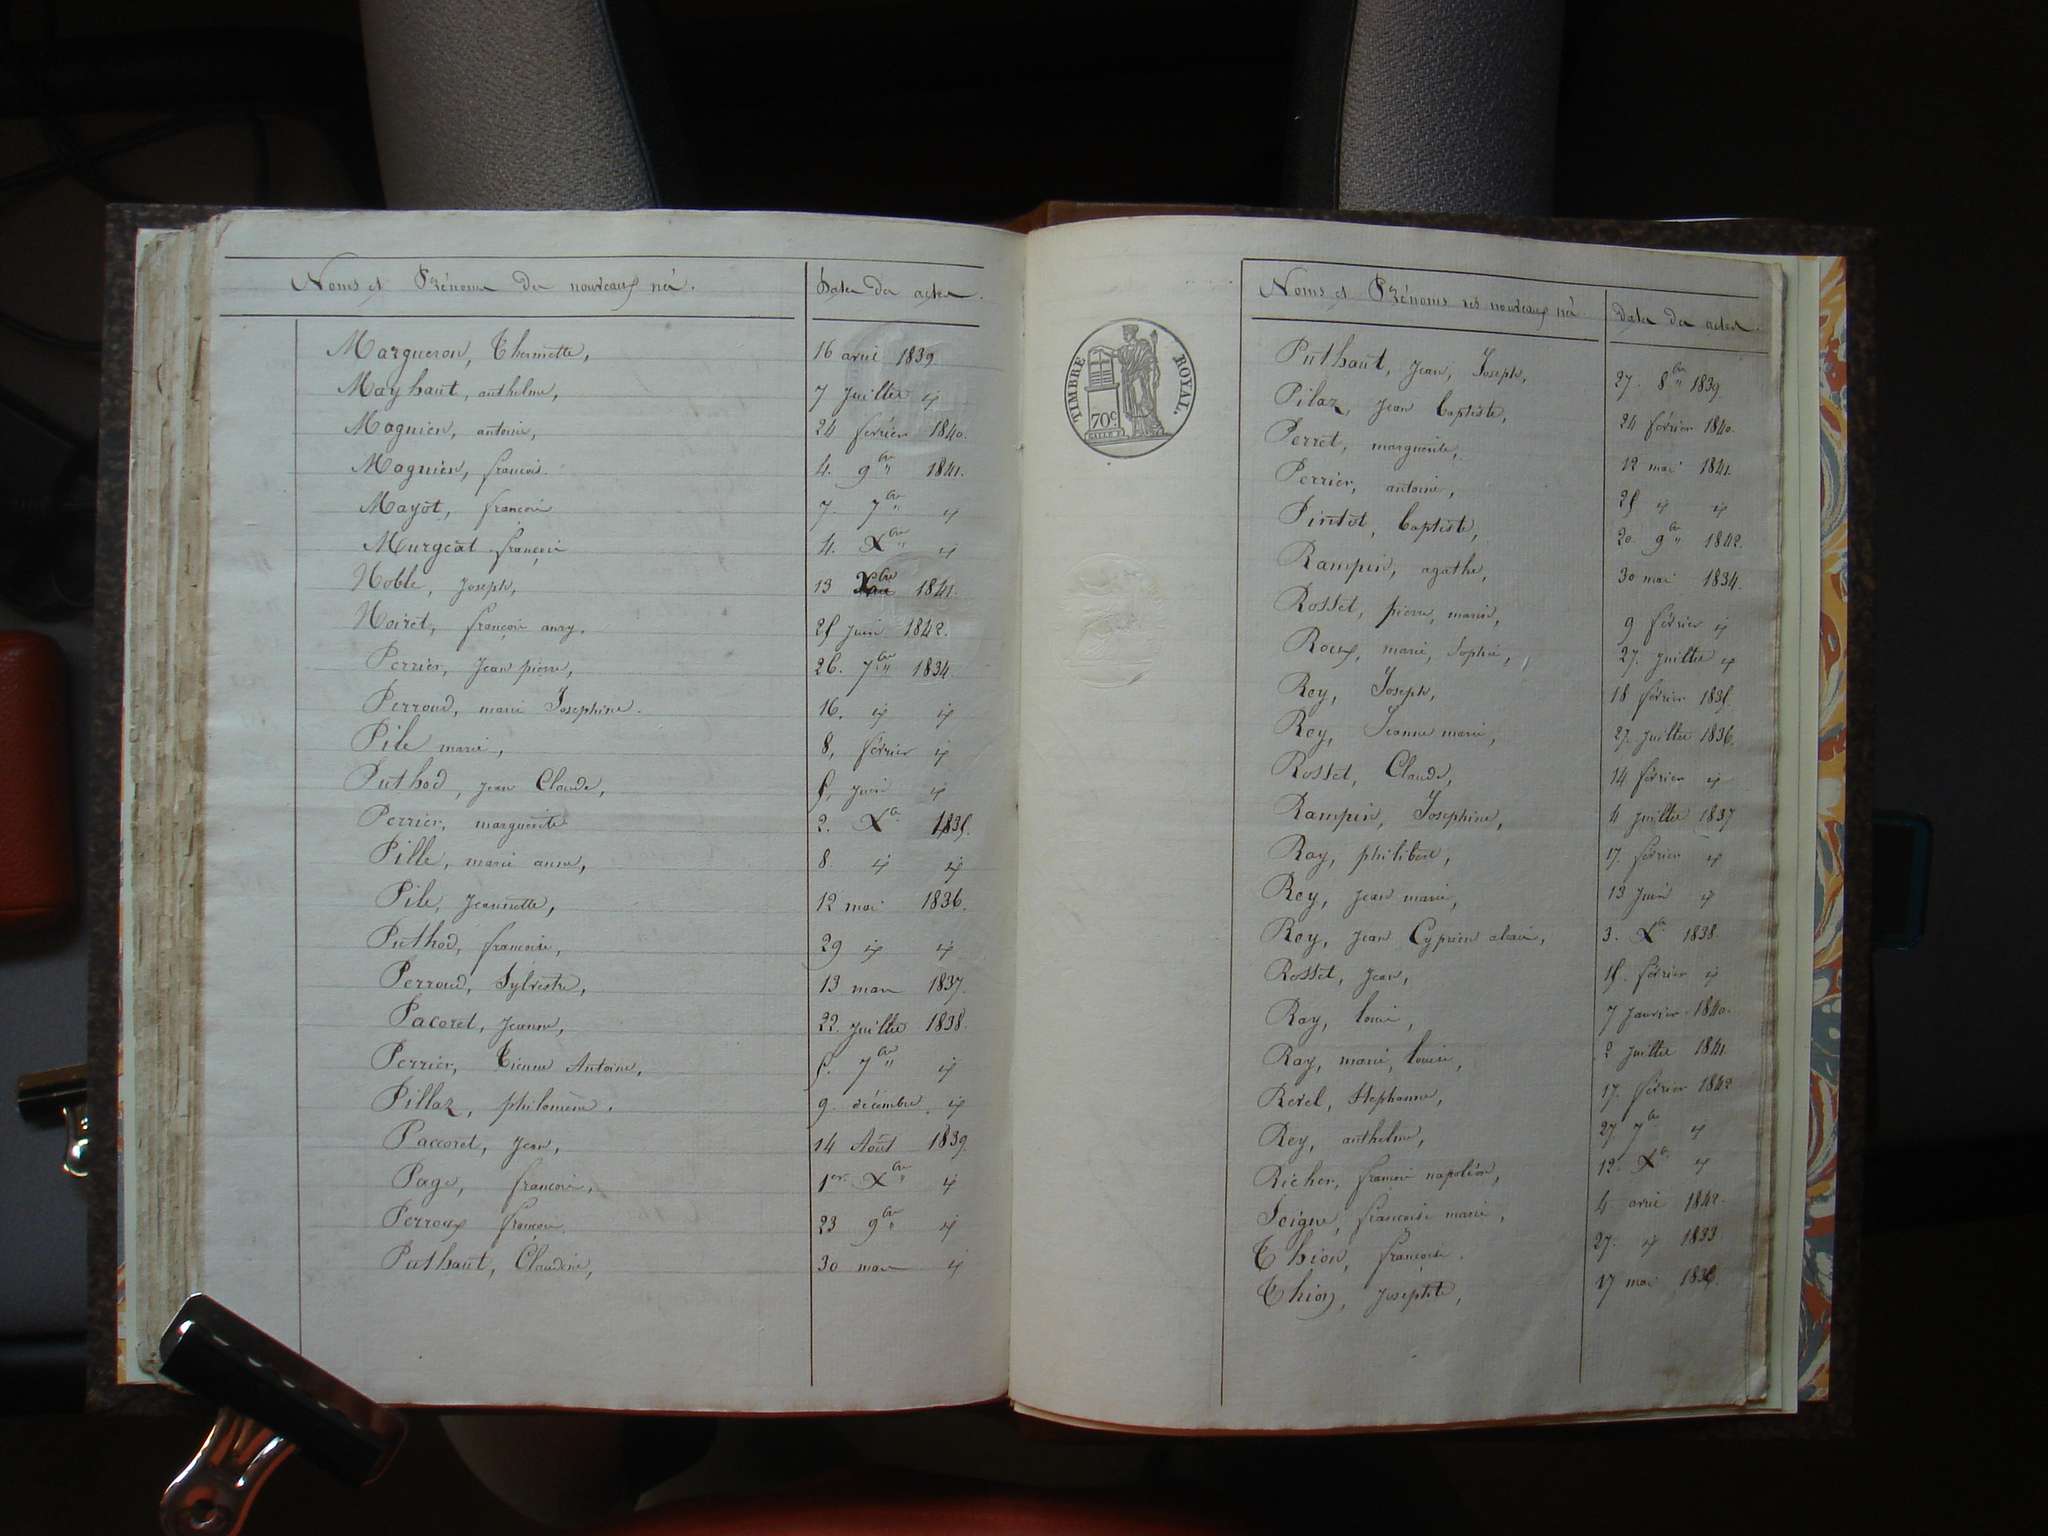 Noms et Prénoms des nouveaux nés. Dates des actes.
Margueron, Thermette, 16 avril 1839.
Mayhaut, anthelme, 7 Juillet id
Magnien, antoine, 24 février 1840.
Magnien, francois. 4. 9bre 1841.
Mayot, françois 7. 7bre id
Murgeat françois 4. Xbre id
Noble, Joseph, 13 Xbre 1841.
Noiret, françois 25 Juin 1842.
Perrier, Jean pierre, 26. 7bre 1834.
Perroud, marie Josephine. 16. id id
Pile marie, 8, février id
Puthod, Jean Claude, 5, Juin id
Perrier, marguerite 2. Xbre 1835.
Pille, marie anne, 8 id id
Pile, Jeannette, 12 mai 1836.
Puthod, francoise, 29 id id
Perroud, Sylvestre, 13 mars 1837.
Pacoret, Jeanne, 22. Juillet 1838.
Perrier, Etienne Antoine, 5. 7bre id
Pillaz, philomène. 9. décembre id
Paccoret, Jean, 14 Août 1839.
Page, francoise, 1er Xbre id
Perroux françois 23 9bre id
Puthaut, Claudine, 30 mars id
TIMBRE ROYAL.
70c
Noms et Prénoms des nouveaux nés. Dates des actes.
Puthaut, Jean, Joseph, 27. 8bre 1839.
Pilaz, Jean baptiste, 24 février 1840.
Perret, marguerite, 12 mai 1841.
Perrier, antoine, 25 id id
Pintot, baptiste, 20. 9bre 1842.
Rampin, agathe, 30 mai 1834.
Rosset, pierre, marie, 9 février id
Roux, marie, Sophie, 27. Juillet id
Rey, Joseph, 18 février 1835.
Rey, Jeanne marie, 27. Juillet 1836.
Rosset, Claude, 14 février id
Rampin, Josephine, 4 Juillet 1837
Ray, philibert, 17. février id
Rey, Jean marie, 13 Juin id
Rey, Jean Cyprien alexis, 3. Xbre 1838.
Rosset, Jean, 15. février id
Ray, louis, 7 Janvier 1840.
Ray, marie, louise, 2 Juillet 1841
Revel, Stephanne, 17. février 1842
Rey, anthelme, 27 7bre id
Richer, francois napoléon, 12. Xbre id
Seigne, francoise marie, 4 avril 1842.
Thion, françoise. 27. id 1833
Thion, Josephte, 17 mai